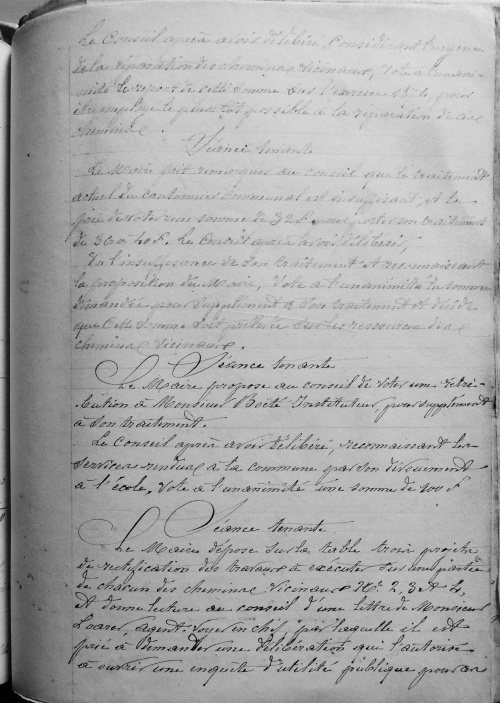 Le Conseil après avoir délibéré, Considérant l'urgence
de la réparation des chemins vicinaux, vote à l'unani-
mité le report de cette somme sur l'exercice pour
être employée le plus tôt possible à la réparation de ces
chemins.
Séance tenante
Le Maire fait remarquer au conseil que le traitement
actuel du cantonnier communal est insuffisant, et le
prie de voter une somme de 32 f pour porter son traitement
de 36 à 40 f. Le Conseil après avoir délibéré,
Vu l'insuffisance de son traitement et reconnaissant
la proposition du Maire, vote à l'unanimité la somme
demandée pour supplément à son traitement et décide
que cette somme soit prélevée sur les ressources des
chemins vicinaux.
Séance tenante
Le Maire propose au conseil de voter une rétri-
bution à Monsieur Boité Instituteur, pour supplément
à son traitement.
Le Conseil après avoir délibéré, reconnaissant les
services rendus à la commune par son dévouement
à l'école, vote à l'unanimité une somme de 100 f
Séance tenante
Le Maire dépose sur la table trois projets
de rectification des travaux à exécuter sur une partie
de chacun des chemins vicinaux Nos 2, 3 et 4,
Et donne lecture au conseil d'une lettre de Monsieur
Loarer, agent voyer en chef, par laquelle il est
prié à demander une délibération qui l'autorise
à ouvrir une enquête d'utilité publique pour ces